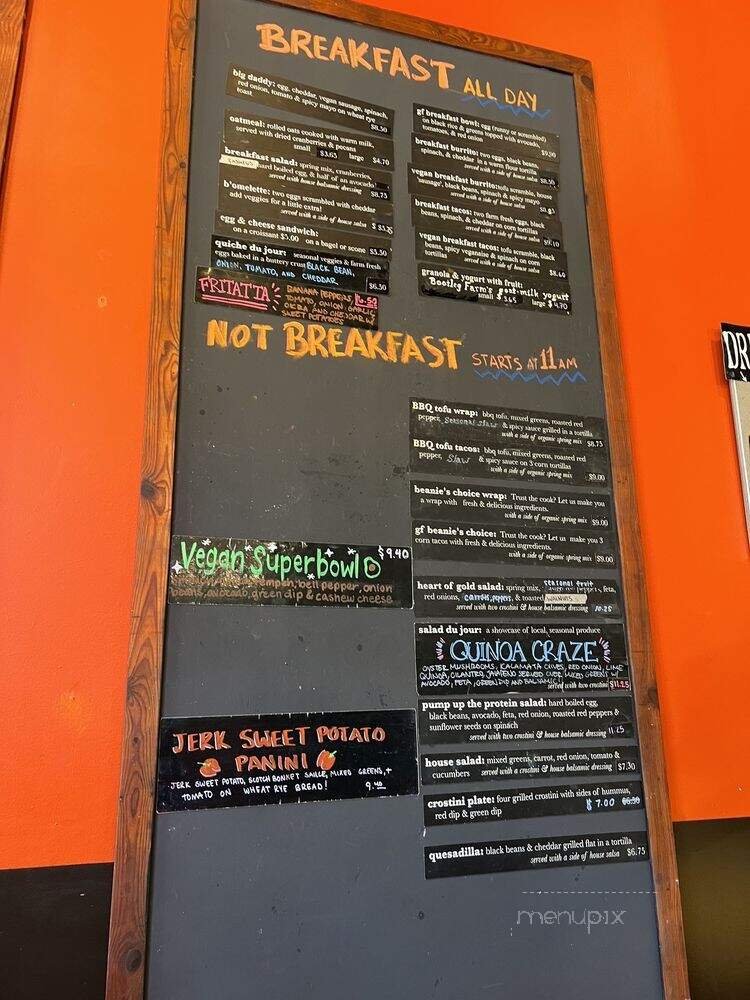 BREAKFAST ALL DAY
big daddy: egg, cheddar, vegan sausage, spinach,
red onion, tomato & spicy mayo on wheat rye
toast $8.50
oatmeal: rolled oats cooked with warm milk,
served with dried cranberries & pecans
small $3.65 large $4.70
breakfast salad: spring mix, cranberries,
hard boiled egg, & half of an avocado
served with house balsamic dressing $8.75
b'omelette: two eggs scrambled with cheddar
add veggies for a little extra!
served with a side of house salsa
egg & cheese sandwich:
on a croissant $5.00 on a bagel or scone $5.50
quiche du jour: seasonal veggies & farm fresh
eggs baked in a buttery crust BLACK BEAN,
ONION, TOMATO, AND CHEDDAR $6.50
FRITATTA BANANA PEPPERS, $6.50
TOMATO, ONION, GARLIC,
OKRA AND CHEDDAR W/
SWEET POTATOES
gf breakfast bowl: egg (runny or scrambled)
on black rice & greens topped with avocado,
tomatoes, & red onion $9.90
breakfast burrito: two eggs, black beans,
spinach, & cheddar in a warm flour tortilla
served with a side of house salsa $8.50
vegan breakfast burrito: tofu scramble, house
'sausage', black beans, spinach & spicy mayo
served with a side of house salsa
breakfast tacos: two farm fresh eggs, black
beans, spinach, & cheddar on corn tortillas
served with a side of house salsa
vegan breakfast tacos: tofu scramble, black
beans, spicy veganaise & spinach on corn
tortillas
granola & yogurt with fruit:
Bootleg Farm's goat-milk yogurt
small $3.65 large $4.70
NOT BREAKFAST STARTS AT 11AM
BBQ tofu wrap: bbq tofu, mixed greens, roasted red
pepper, Seasonal Slaw & spicy sauce grilled in a tortilla
with a side of organic spring mix $8.75
BBQ tofu tacos: bbq tofu, mixed greens, roasted red
pepper, Slaw & spicy sauce on 3 corn tortillas
with a side of organic spring mix $9.00
beanie's choice wrap: Trust the cook? Let us make you
a wrap with fresh & delicious ingredients.
with a side of organic spring mix $9.00
gf beanie's choice: Trust the cook? Let us make you 3
corn tacos with fresh & delicious ingredients.
with a side of organic spring mix $9.00
Vegan Superbowl $9.40
tempeh, bell pepper, onion
beans, avocado, green dip & cashew cheese
heart of gold salad: spring mix, seasonal fruit, feta,
red onions, & toasted WALNUTS
served with two crostini & house balsamic dressing 10.25
salad du jour: a showcase of local, seasonal produce
QUINOA CRAZE
OYSTER MUSHROOMS, KALAMATA OLIVES, RED ONION, LIME
QUINOA, CILANTRO, JALAPENO SERVED OVER MIXED GREENS W/
AVOCADO, FETA, GREEN DIP AND BALSAMIC
served with two crostini $11.25
pump up the protein salad: hard boiled egg,
black beans, avocado, feta, red onion, roasted red peppers &
sunflower seeds on spinach
served with two crostini & house balsamic dressing 11.25
JERK SWEET POTATO
PANINI
JERK SWEET POTATO, SCOTCH BONNET SAUCE, MIXED GREENS, +
TOMATO ON WHEAT RYE BREAD! 9.40
house salad: mixed greens, carrot, red onion, tomato &
cucumbers served with a crostini & house balsamic dressing $7.30
crostini plate: four grilled crostini with sides of hummus,
red dip & green dip $7.00 $6.50
quesadilla: black beans & cheddar grilled flat in a tortilla
served with a side of house salsa $6.75
menupix
DR